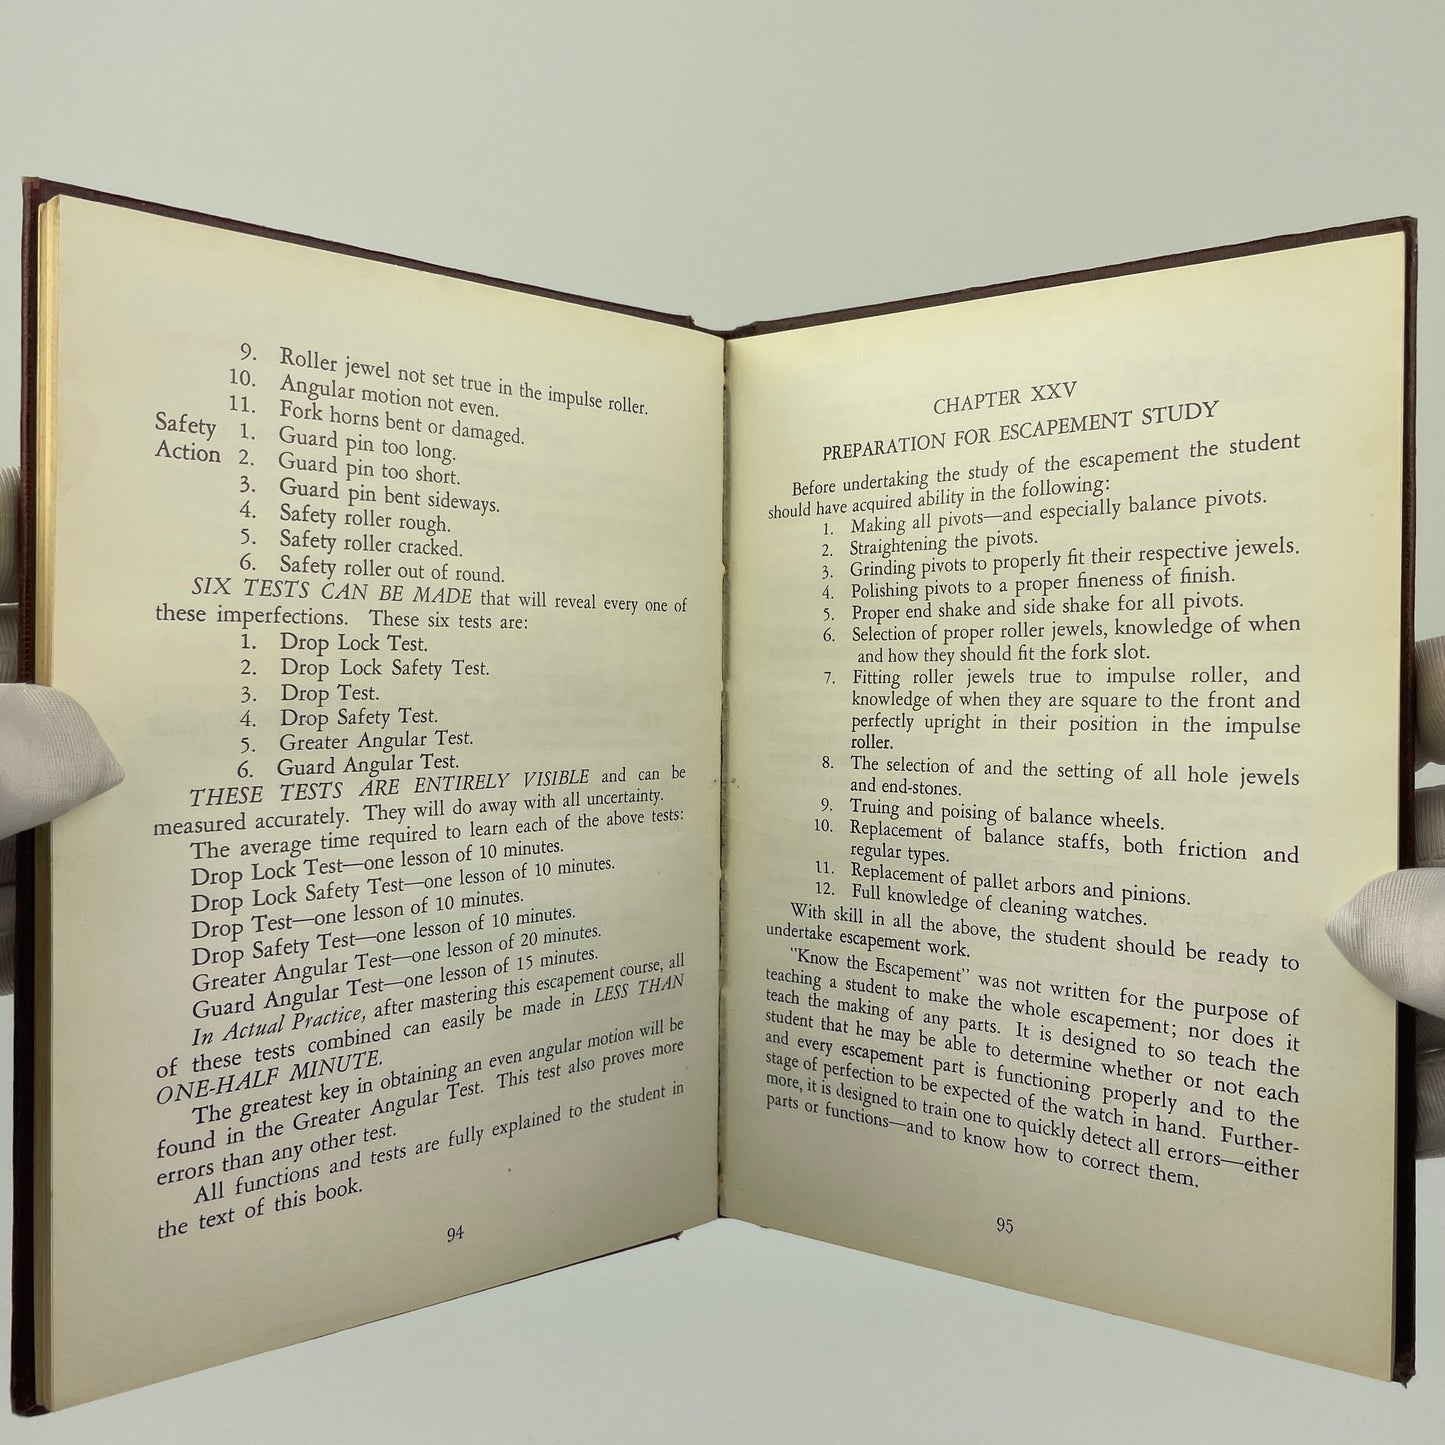 9. Roller jewel not set true in the impulse roller.
10. Angular motion not even.
11. Fork horns bent or damaged.
Safety 1. Guard pin too long.
Action 2. Guard pin too short.
3. Guard pin bent sideways.
4. Safety roller rough.
5. Safety roller cracked.
6. Safety roller out of round.
SIX TESTS CAN BE MADE that will reveal every one of
these imperfections. These six tests are:
1. Drop Lock Test.
2. Drop Lock Safety Test.
3. Drop Test.
4. Drop Safety Test.
5. Greater Angular Test.
6. Guard Angular Test.
THESE TESTS ARE ENTIRELY VISIBLE and can be
measured accurately. They will do away with all uncertainty.
The average time required to learn each of the above tests:
Drop Lock Test—one lesson of 10 minutes.
Drop Lock Safety Test—one lesson of 10 minutes.
Drop Test—one lesson of 10 minutes.
Drop Safety Test—one lesson of 10 minutes.
Greater Angular Test—one lesson of 20 minutes.
Guard Angular Test—one lesson of 15 minutes.
In Actual Practice, after mastering this escapement course, all
of these tests combined can easily be made in LESS THAN
ONE-HALF MINUTE.
The greatest key in obtaining an even angular motion will be
found in the Greater Angular Test. This test also proves more
errors than any other test.
All functions and tests are fully explained to the student in
the text of this book.
94
CHAPTER XXV
PREPARATION FOR ESCAPEMENT STUDY
Before undertaking the study of the escapement the student
should have acquired ability in the following:
1. Making all pivots—and especially balance pivots.
2. Straightening the pivots.
3. Grinding pivots to properly fit their respective jewels.
4. Polishing pivots to a proper fineness of finish.
5. Proper end shake and side shake for all pivots.
6. Selection of proper roller jewels, knowledge of when
and how they should fit the fork slot.
7. Fitting roller jewels true to impulse roller, and
knowledge of when they are square to the front and
perfectly upright in their position in the impulse
roller.
8. The selection of and the setting of all hole jewels
and end-stones.
9. Truing and poising of balance wheels.
10. Replacement of balance staffs, both friction and
regular types.
11. Replacement of pallet arbors and pinions.
12. Full knowledge of cleaning watches.
With skill in all the above, the student should be ready to
undertake escapement work.
"Know the Escapement" was not written for the purpose of
teaching a student to make the whole escapement; nor does it
teach the making of any parts. It is designed to so teach the
student that he may be able to determine whether or not each
and every escapement part is functioning properly and to the
stage of perfection to be expected of the watch in hand. Further-
more, it is designed to train one to quickly detect all errors—either
parts or functions—and to know how to correct them.
95